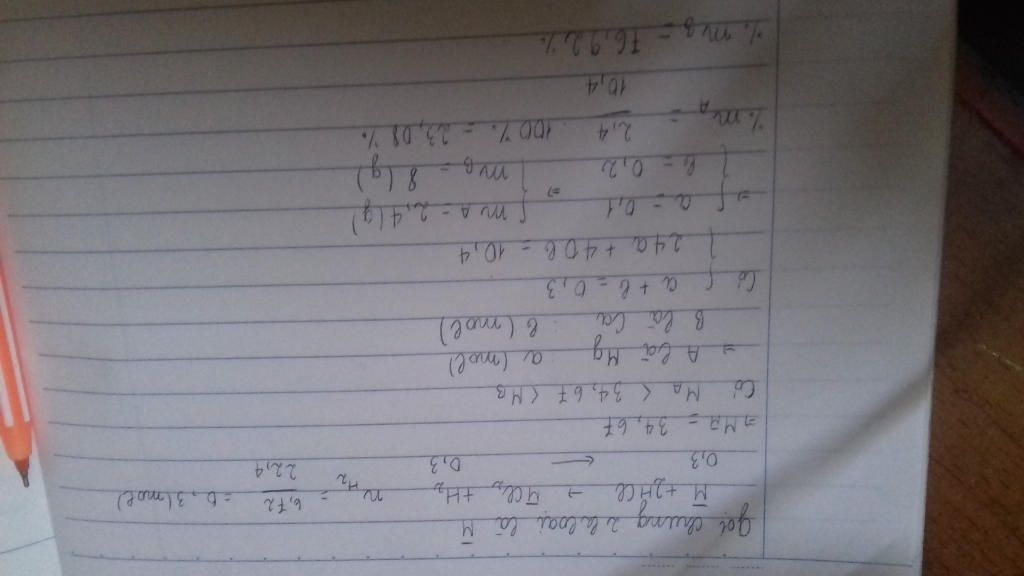 Gọi chung 2 kloai là M̅
M̅ + 2HCl → M̅Cl₂ + H₂ n_H₂ = 6,72/22,4 = 0,3 (mol)
0,3 ← 0,3
⇒ M_M̅ = 34,67
Có M_A < 34,67 < M_B
⇒ A là Mg a (mol)
B là Ca : b (mol)
Có { a + b = 0,3
{ 24a + 40b = 10,4
⇒ { a = 0,1 ⇒ { m_A = 2,4 (g)
{ b = 0,2 { m_B = 8 (g)
% m_A = 2,4/10,4 . 100% = 23,08%.
% m_B = 76,92%.